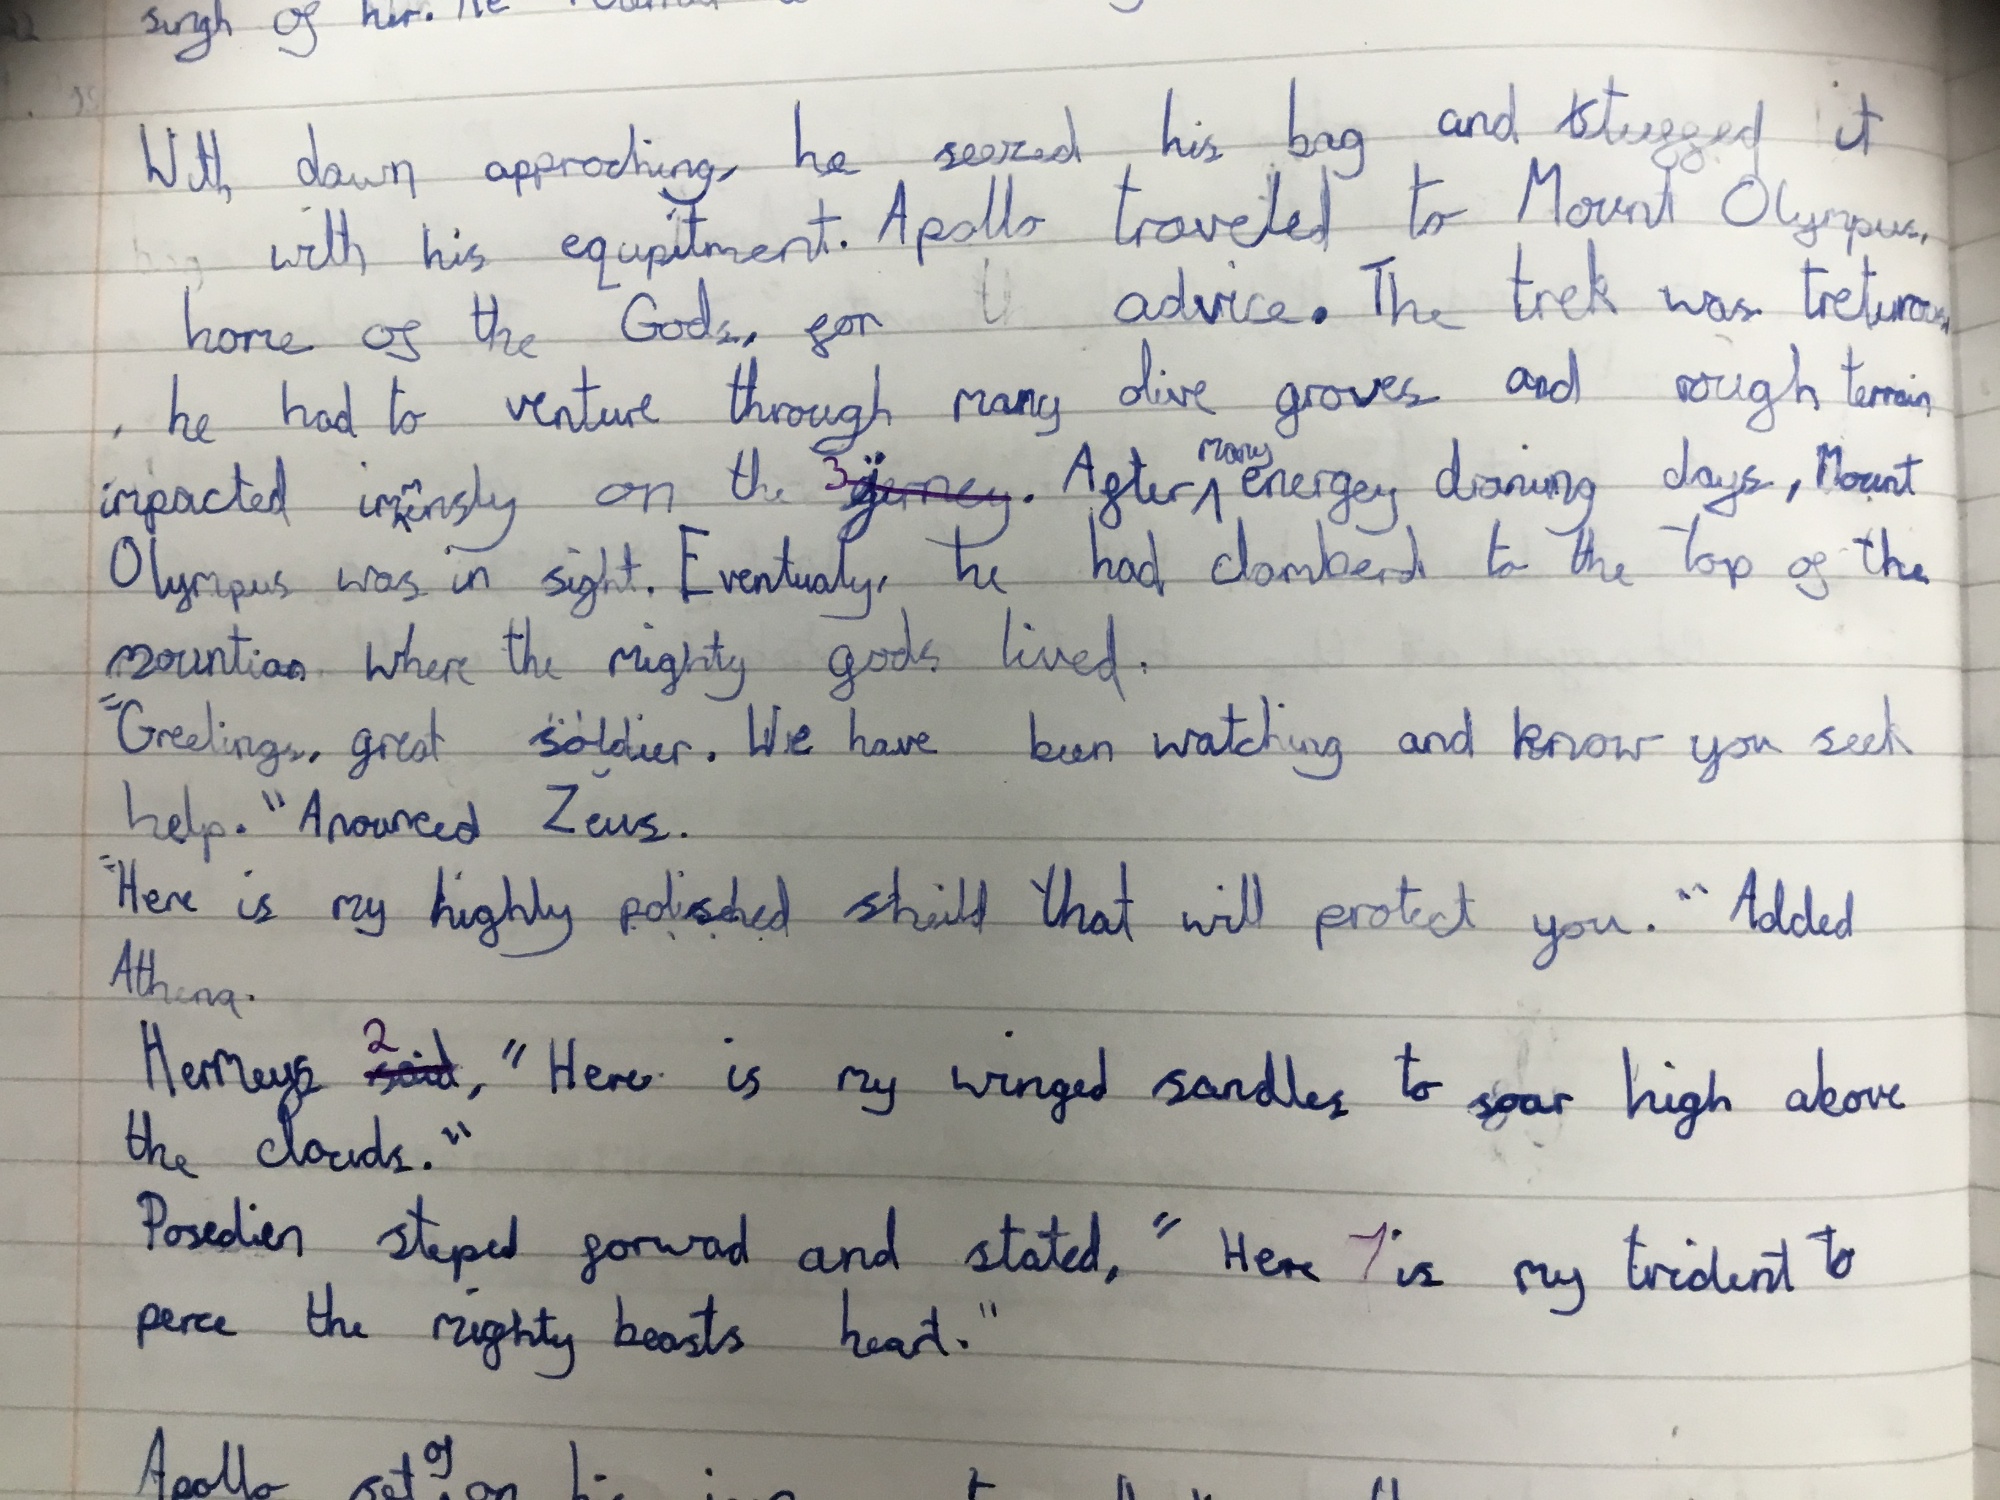 singh of her. He
With dawn approching, he seezed his bag and stugged it
with his equpitment. Apollo traveled to Mount Olympus,
home of the Gods, for advice. The trek was treturous
, he had to venture through many olive groves and rough terrain
impacted imensly on the 3 jerney. After many energey draning days, Mount
Olympus was in sight. Eventualy, he had clamberd to the top of the
mountian where the mighty gods lived.
"Greetings, great soldier. We have been watching and know you seek
help." Anounced Zeus.
"Here is my highly polisched sheild that will protect you." Added
Athena.
Hermeys 2 said, "Here is my winged sandles to soar high above
the clouds."
Posedien steped forwad and stated, "Here 1 is my trident to
perce the mighty beasts heart."
Apollo set of on his